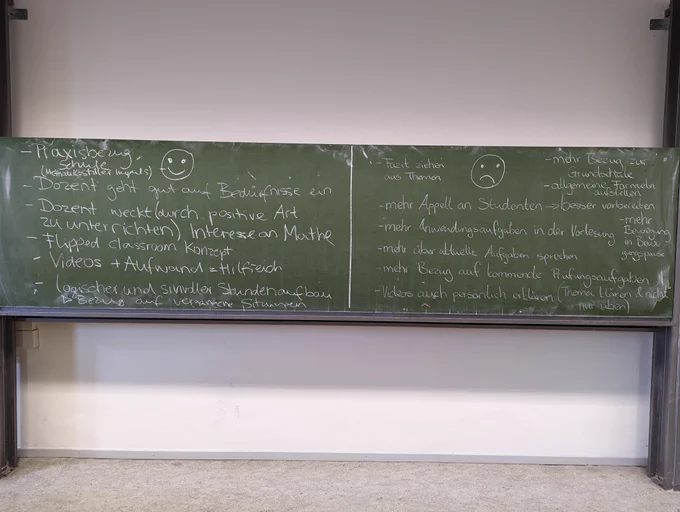 - Praxisbezug,
Schule
- Dozent geht gut auf Bedürfnisse ein
- Dozent weckt (durch positive Art
zu unterrichten) Interesse an Mathe
- flipped classroom Konzept
- Videos + Aufwand = Hilfreich
- logischer und sinnvoller Stundenaufbau
Bezug auf vergangene Sitzungen
- Fazit ziehen
aus Themen
- mehr Bezug zur
Grundschule
- allgemeine Formeln
aufstellen
- mehr Appell an Studenten → besser vorbereiten
- mehr Anwendungsaufgaben in der Vorlesung
- mehr
Bewegung
in
- mehr über aktuelle Aufgaben sprechen
- mehr Bezug auf kommende Prüfungsaufgaben
- Videos auch persönlich erklären (Thema klären & nicht
nur üben)